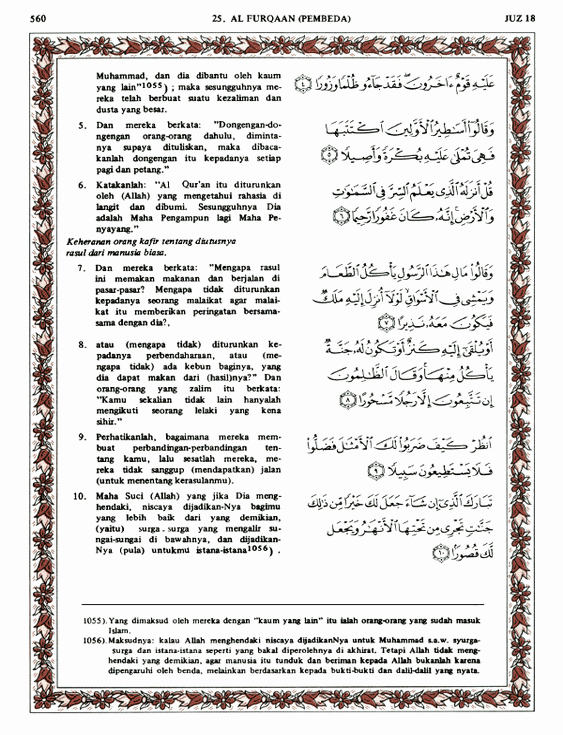 560 25. AL FURQAAN (PEMBEDA) JUZ 18
Muhammad, dan dia dibantu oleh kaum
yang lain"1055) ; maka sesungguhnya me-
reka telah berbuat suatu kezaliman dan
dusta yang besar.
5. Dan mereka berkata: "Dongengan-do-
ngengan orang-orang dahulu, diminta-
nya supaya dituliskan, maka dibaca-
kanlah dongengan itu kepadanya setiap
pagi dan petang."
6. Katakanlah: "Al Qur'an itu diturunkan
oleh (Allah) yang mengetahui rahasia di
langit dan dibumi. Sesungguhnya Dia
adalah Maha Pengampun lagi Maha Pe-
nyayang."
Keheranan orang kafir tentang diutusnya
rasul dari manusia biasa.
7. Dan mereka berkata: "Mengapa rasul
ini memakan makanan dan berjalan di
pasar-pasar? Mengapa tidak diturunkan
kepadanya seorang malaikat agar malai-
kat itu memberikan peringatan bersama-
sama dengan dia?,
8. atau (mengapa tidak) diturunkan ke-
padanya perbendaharaan, atau (me-
ngapa tidak) ada kebun baginya, yang
dia dapat makan dari (hasil)nya?" Dan
orang-orang yang zalim itu berkata:
"Kamu sekalian tidak lain hanyalah
mengikuti seorang lelaki yang kena
sihir."
9. Perhatikanlah, bagaimana mereka mem-
buat perbandingan-perbandingan ten-
tang kamu, lalu sesatlah mereka, me-
reka tidak sanggup (mendapatkan) jalan
(untuk menentang kerasulanmu).
10. Maha Suci (Allah) yang jika Dia meng-
hendaki, niscaya dijadikan-Nya bagimu
yang lebih baik dari yang demikian,
(yaitu) surga - surga yang mengalir su-
ngai-sungai di bawahnya, dan dijadikan-
Nya (pula) untukmu istana-istana1056) .
عَلَيْهِ قَوْمٌ ءَاخَرُونَ فَقَدْ جَاءُو ظُلْمًا وَزُورًا ﴿٤﴾
وَقَالُوا أَسَاطِيرُ الْأَوَّلِينَ اكْتَتَبَهَا
فَهِيَ تُمْلَى عَلَيْهِ بُكْرَةً وَأَصِيلًا ﴿٥﴾
قُلْ أَنْزَلَهُ الَّذِي يَعْلَمُ السِّرَّ فِي السَّمَاوَاتِ
وَالْأَرْضِ إِنَّهُ كَانَ غَفُورًا رَحِيمًا ﴿٦﴾
وَقَالُوا مَالِ هَذَا الرَّسُولِ يَأْكُلُ الطَّعَامَ
وَيَمْشِي فِي الْأَسْوَاقِ لَوْلَا أُنْزِلَ إِلَيْهِ مَلَكٌ
فَيَكُونَ مَعَهُ نَذِيرًا ﴿٧﴾
أَوْ يُلْقَى إِلَيْهِ كَنْزٌ أَوْ تَكُونُ لَهُ جَنَّةٌ
يَأْكُلُ مِنْهَا وَقَالَ الظَّالِمُونَ
إِنْ تَتَّبِعُونَ إِلَّا رَجُلًا مَسْحُورًا ﴿٨﴾
انْظُرْ كَيْفَ ضَرَبُوا لَكَ الْأَمْثَالَ فَضَلُّوا
فَلَا يَسْتَطِيعُونَ سَبِيلًا ﴿٩﴾
تَبَارَكَ الَّذِي إِنْ شَاءَ جَعَلَ لَكَ خَيْرًا مِنْ ذَلِكَ
جَنَّاتٍ تَجْرِي مِنْ تَحْتِهَا الْأَنْهَارُ وَيَجْعَلْ
لَكَ قُصُورًا ﴿١٠﴾
1055). Yang dimaksud oleh mereka dengan "kaum yang lain" itu ialah orang-orang yang sudah masuk
Islam.
1056). Maksudnya: kalau Allah menghendaki niscaya dijadikanNya untuk Muhammad s.a.w. syurga-
surga dan istana-istana seperti yang bakal diperolehnya di akhirat. Tetapi Allah tidak meng-
hendaki yang demikian, agar manusia itu tunduk dan beriman kepada Allah bukanlah karena
dipengaruhi oleh benda, melainkan berdasarkan kepada bukti-bukti dan dalil-dalil yang nyata.